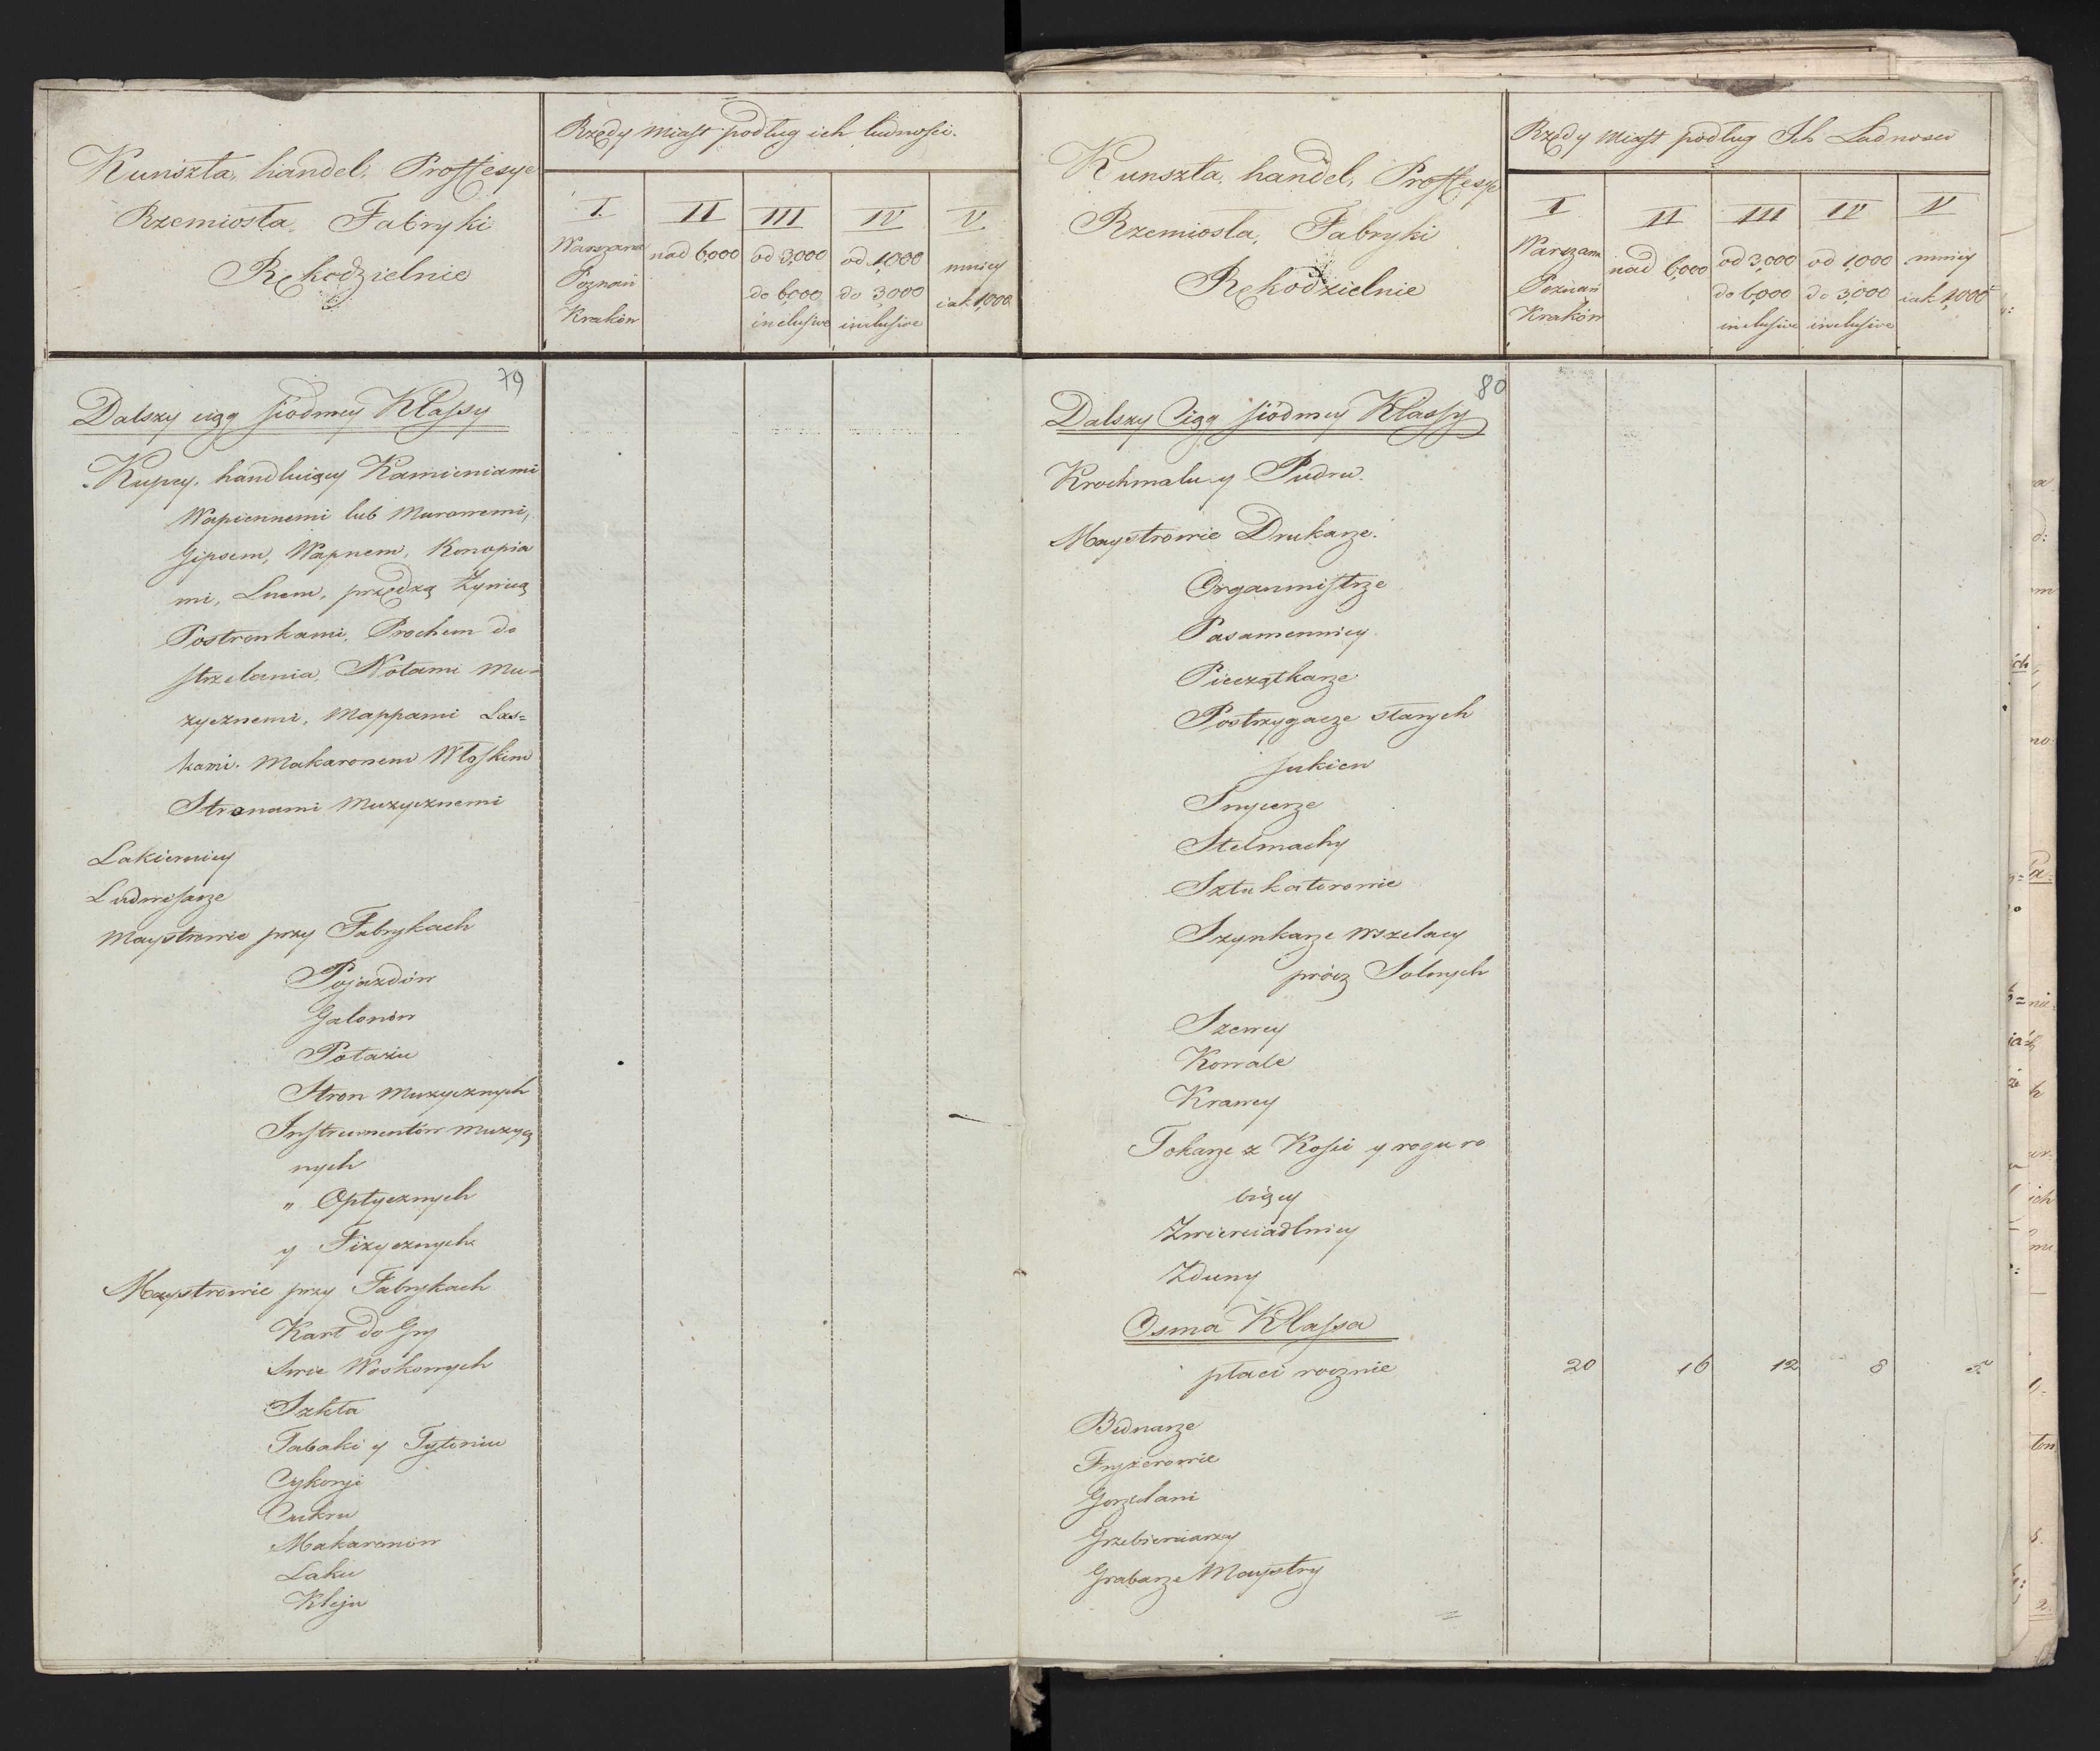 Kunszta, handel, Proffesye
Rzemiosła, Fabryki
Rękodzielnie
Rzędy miast podług ich ludności.
I.
Warszawa
Poznań
Kraków
II
nad 6,000
III
od 3,000
do 6,000
inclusive
IV
od 1,000
do 3,000
inclusive
V
mniey
iak 1,000
79
Dalszy ciąg siódmey Klassy
Kupcy, handluiący Kamieniami
Wapiennemi lub Murowemi,
Gipsem, Wapnem, Konopia
mi, Lnem, przędzą Żywicą
Postronkami, Prochem do
strzelania, Notami Mu-
zycznemi, Mappami Las=
kami. Makaronem Włoskim
Stronami Muzycznemi
Lakiernicy
Ludwisarze
Maystrowie przy Fabrykach
Pojazdów
Galonów
Potażu
Stron Muzycznych
Instrumentów muzycz
nych
" Optycznych
y Fizycznych
Maystrowie przy Fabrykach
Kart do Gry
Swic Woskowych
Szkła
Tabaki y Tytuniu
Cykoryi
Cukru
Makaronów
Laku
Kleju
Kunszta, handel, Proffesye
Rzemiosła, Fabryki
Rękodzielnie
Rzędy Miast podług Ich Ludnosci
I
Warszawa
Poznań
Kraków
II
nad 6,000
III
od 3,000
do 6,000
inclusive
IV
od 1,000
do 3,000
inclusive
V
mniey
iak 1,000
80
Dalszy Ciąg siódmey Klassy
Krochmalu y Pudru.
Maystrowie Drukarze.
Organmistrze
Pasamennicy
Pieczątkarze
Postrzygacze starych
sukien
Snycerze
Stelmachy
Sztukatorowie
Szynkarze wszelacy
prócz Solnych
Szewcy
Kowale
Krawcy
Tokarze z Kości y rogu ro
biący
Zwierciadlnicy
Zduny
Osma Klassa
płaci rocznie 20 16 12 8
Bednarze
Fryzerowie
Gorzelani
Grzebieniarzy
Grabarze Maystry